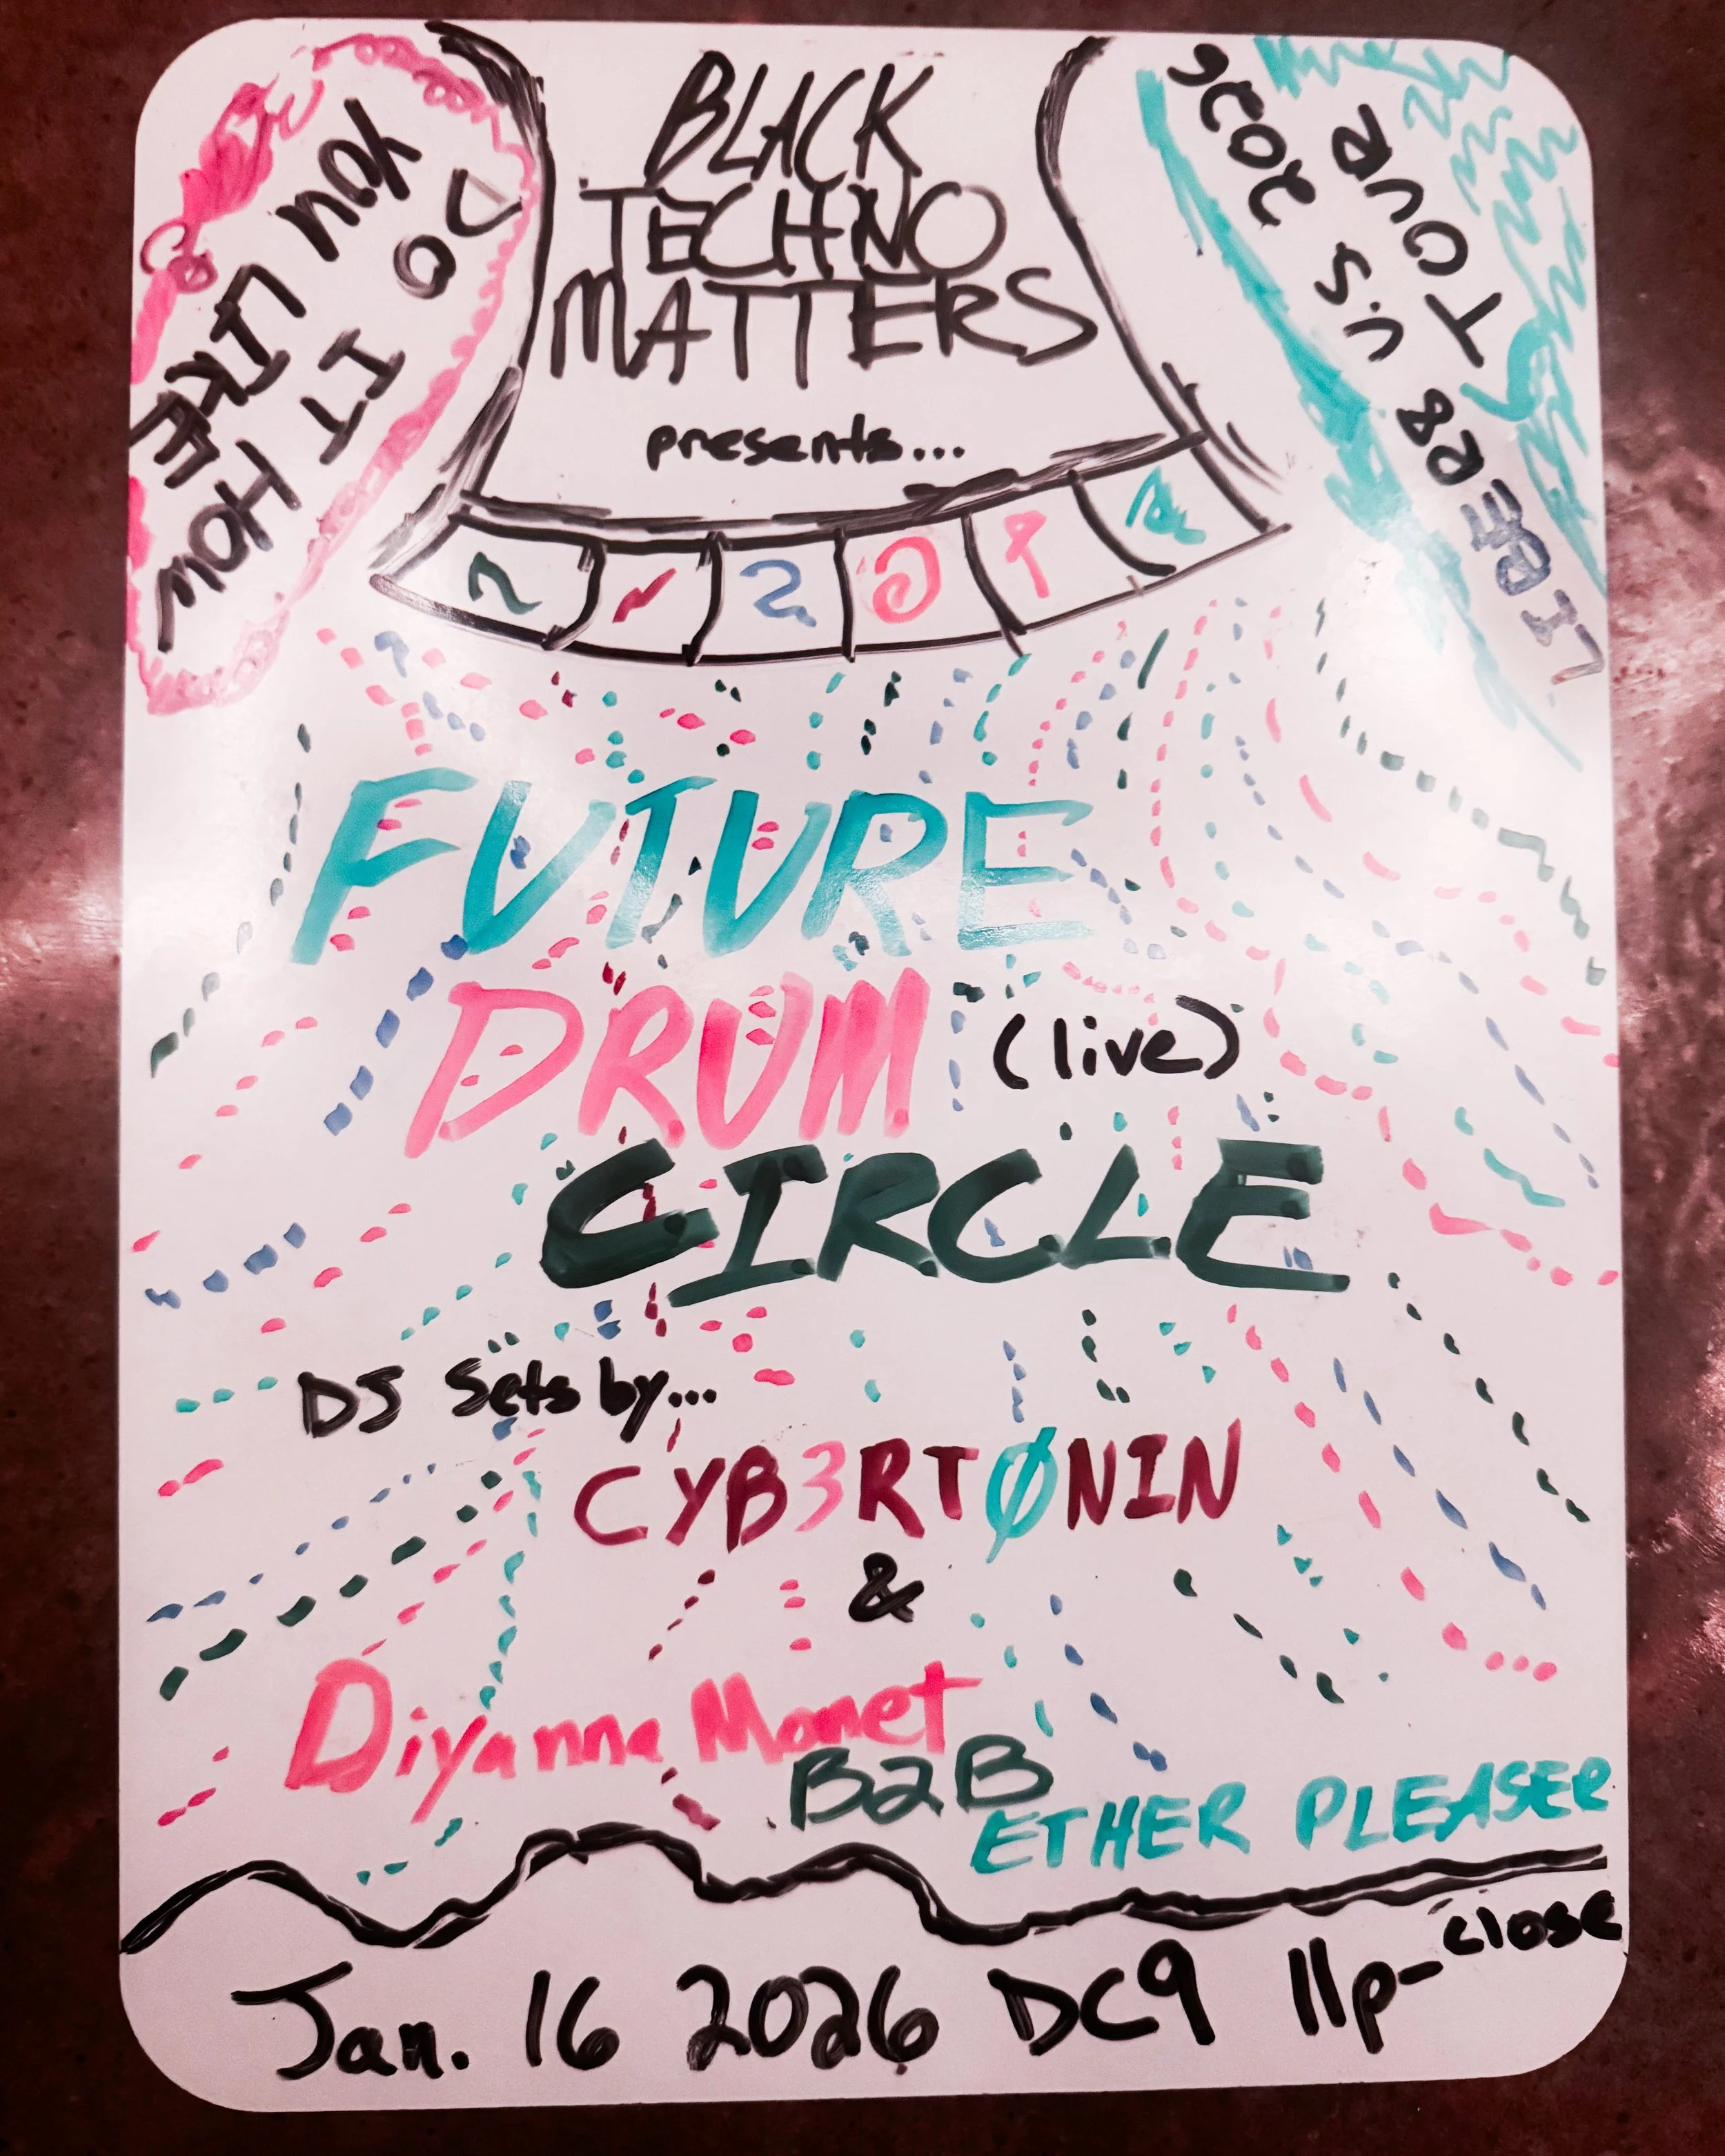 DO
YOU
LIKE
IT HOW
BLACK
TECHNO
MATTERS
presents...
LIBERS
TOUR
U.S
2026
FUTURE
DRUM (live)
CIRCLE
DJ Sets by...
CYB3RTØNIN
&
Diyanna Monet
B2B
ETHER PLEASER
Jan. 16 2026 DC9 11p-close